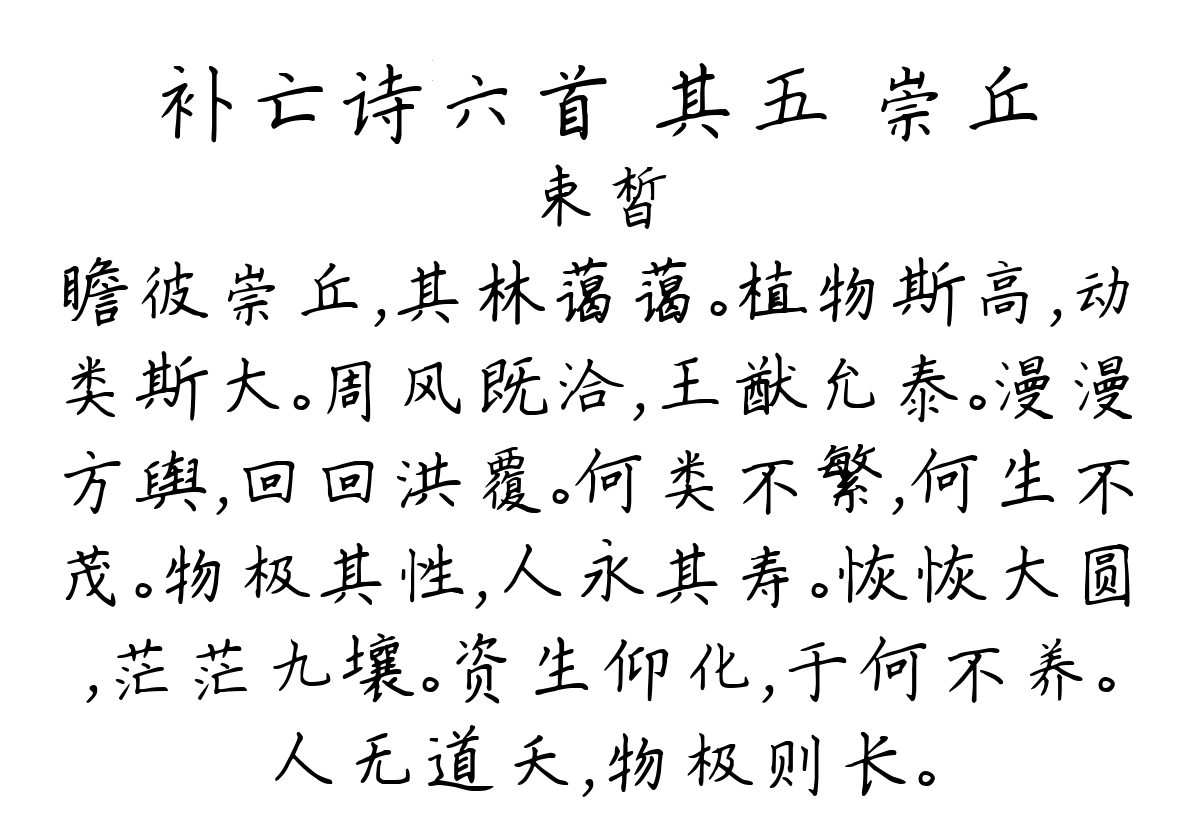 补亡诗六首 其五 崇丘
束皙
瞻彼崇丘,其林蔼蔼。植物斯高,动
类斯大。周风既洽,王猷允泰。漫漫
方舆,回回洪覆。何类不繁,何生不
茂。物极其性,人永其寿。恢恢大圆
,茫茫九壤。资生仰化,于何不养。
人无道夭,物极则长。